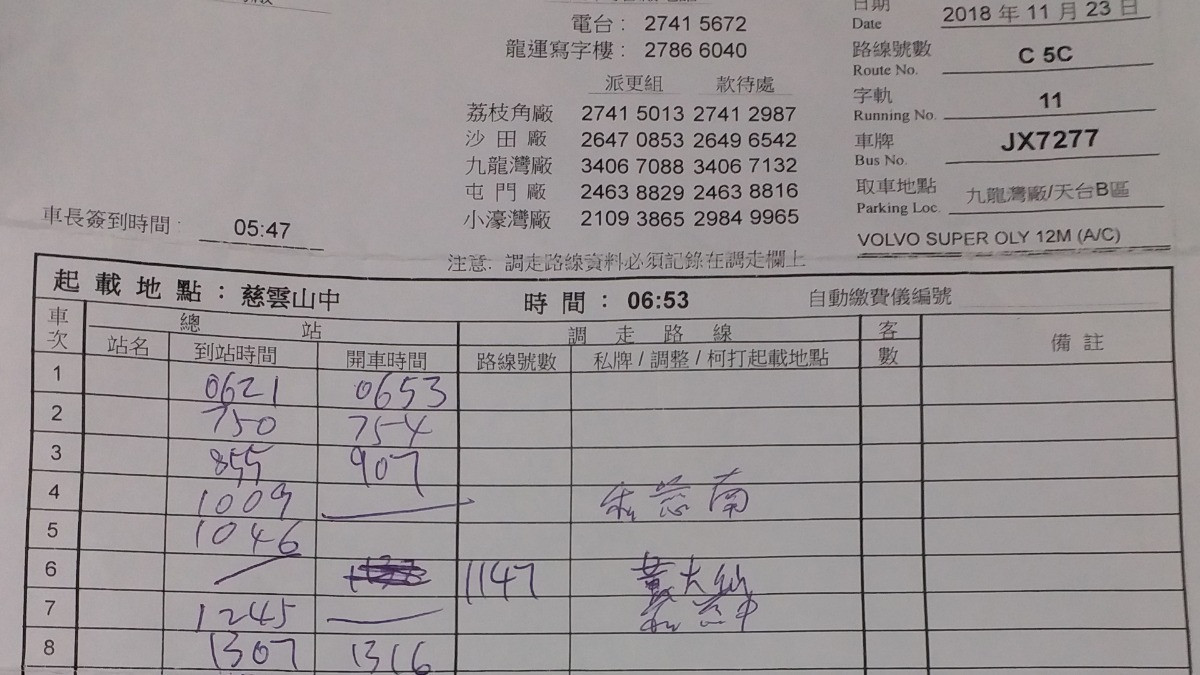 電台： 2741 5672
龍運寫字樓： 2786 6040
派更組 款待處
荔枝角廠 2741 5013 2741 2987
沙田廠 2647 0853 2649 6542
九龍灣廠 3406 7088 3406 7132
屯門廠 2463 8829 2463 8816
小濠灣廠 2109 3865 2984 9965
日期 2018 年 11 月 23 日
Date
路線號數 C 5C
Route No.
字軌 11
Running No.
車牌 JX7277
Bus No.
取車地點 九龍灣廠/天台B區
Parking Loc.
VOLVO SUPER OLY 12M (A/C)
車長簽到時間： 05:47
注意. 調走路線資料必須記錄在調走欄上
起載地點：慈雲山中 時間：06:53 自動繳費儀編號
車次 總站 調走路線 客數 備註
站名 到站時間 開車時間 路線號數 私牌 / 調整 / 柯打起載地點
1 0621 0653
2 750 754
3 855 907
4 1009 慈南
5 1046
6 1147 黃大仙
7 1245 慈中
8 1307 1316